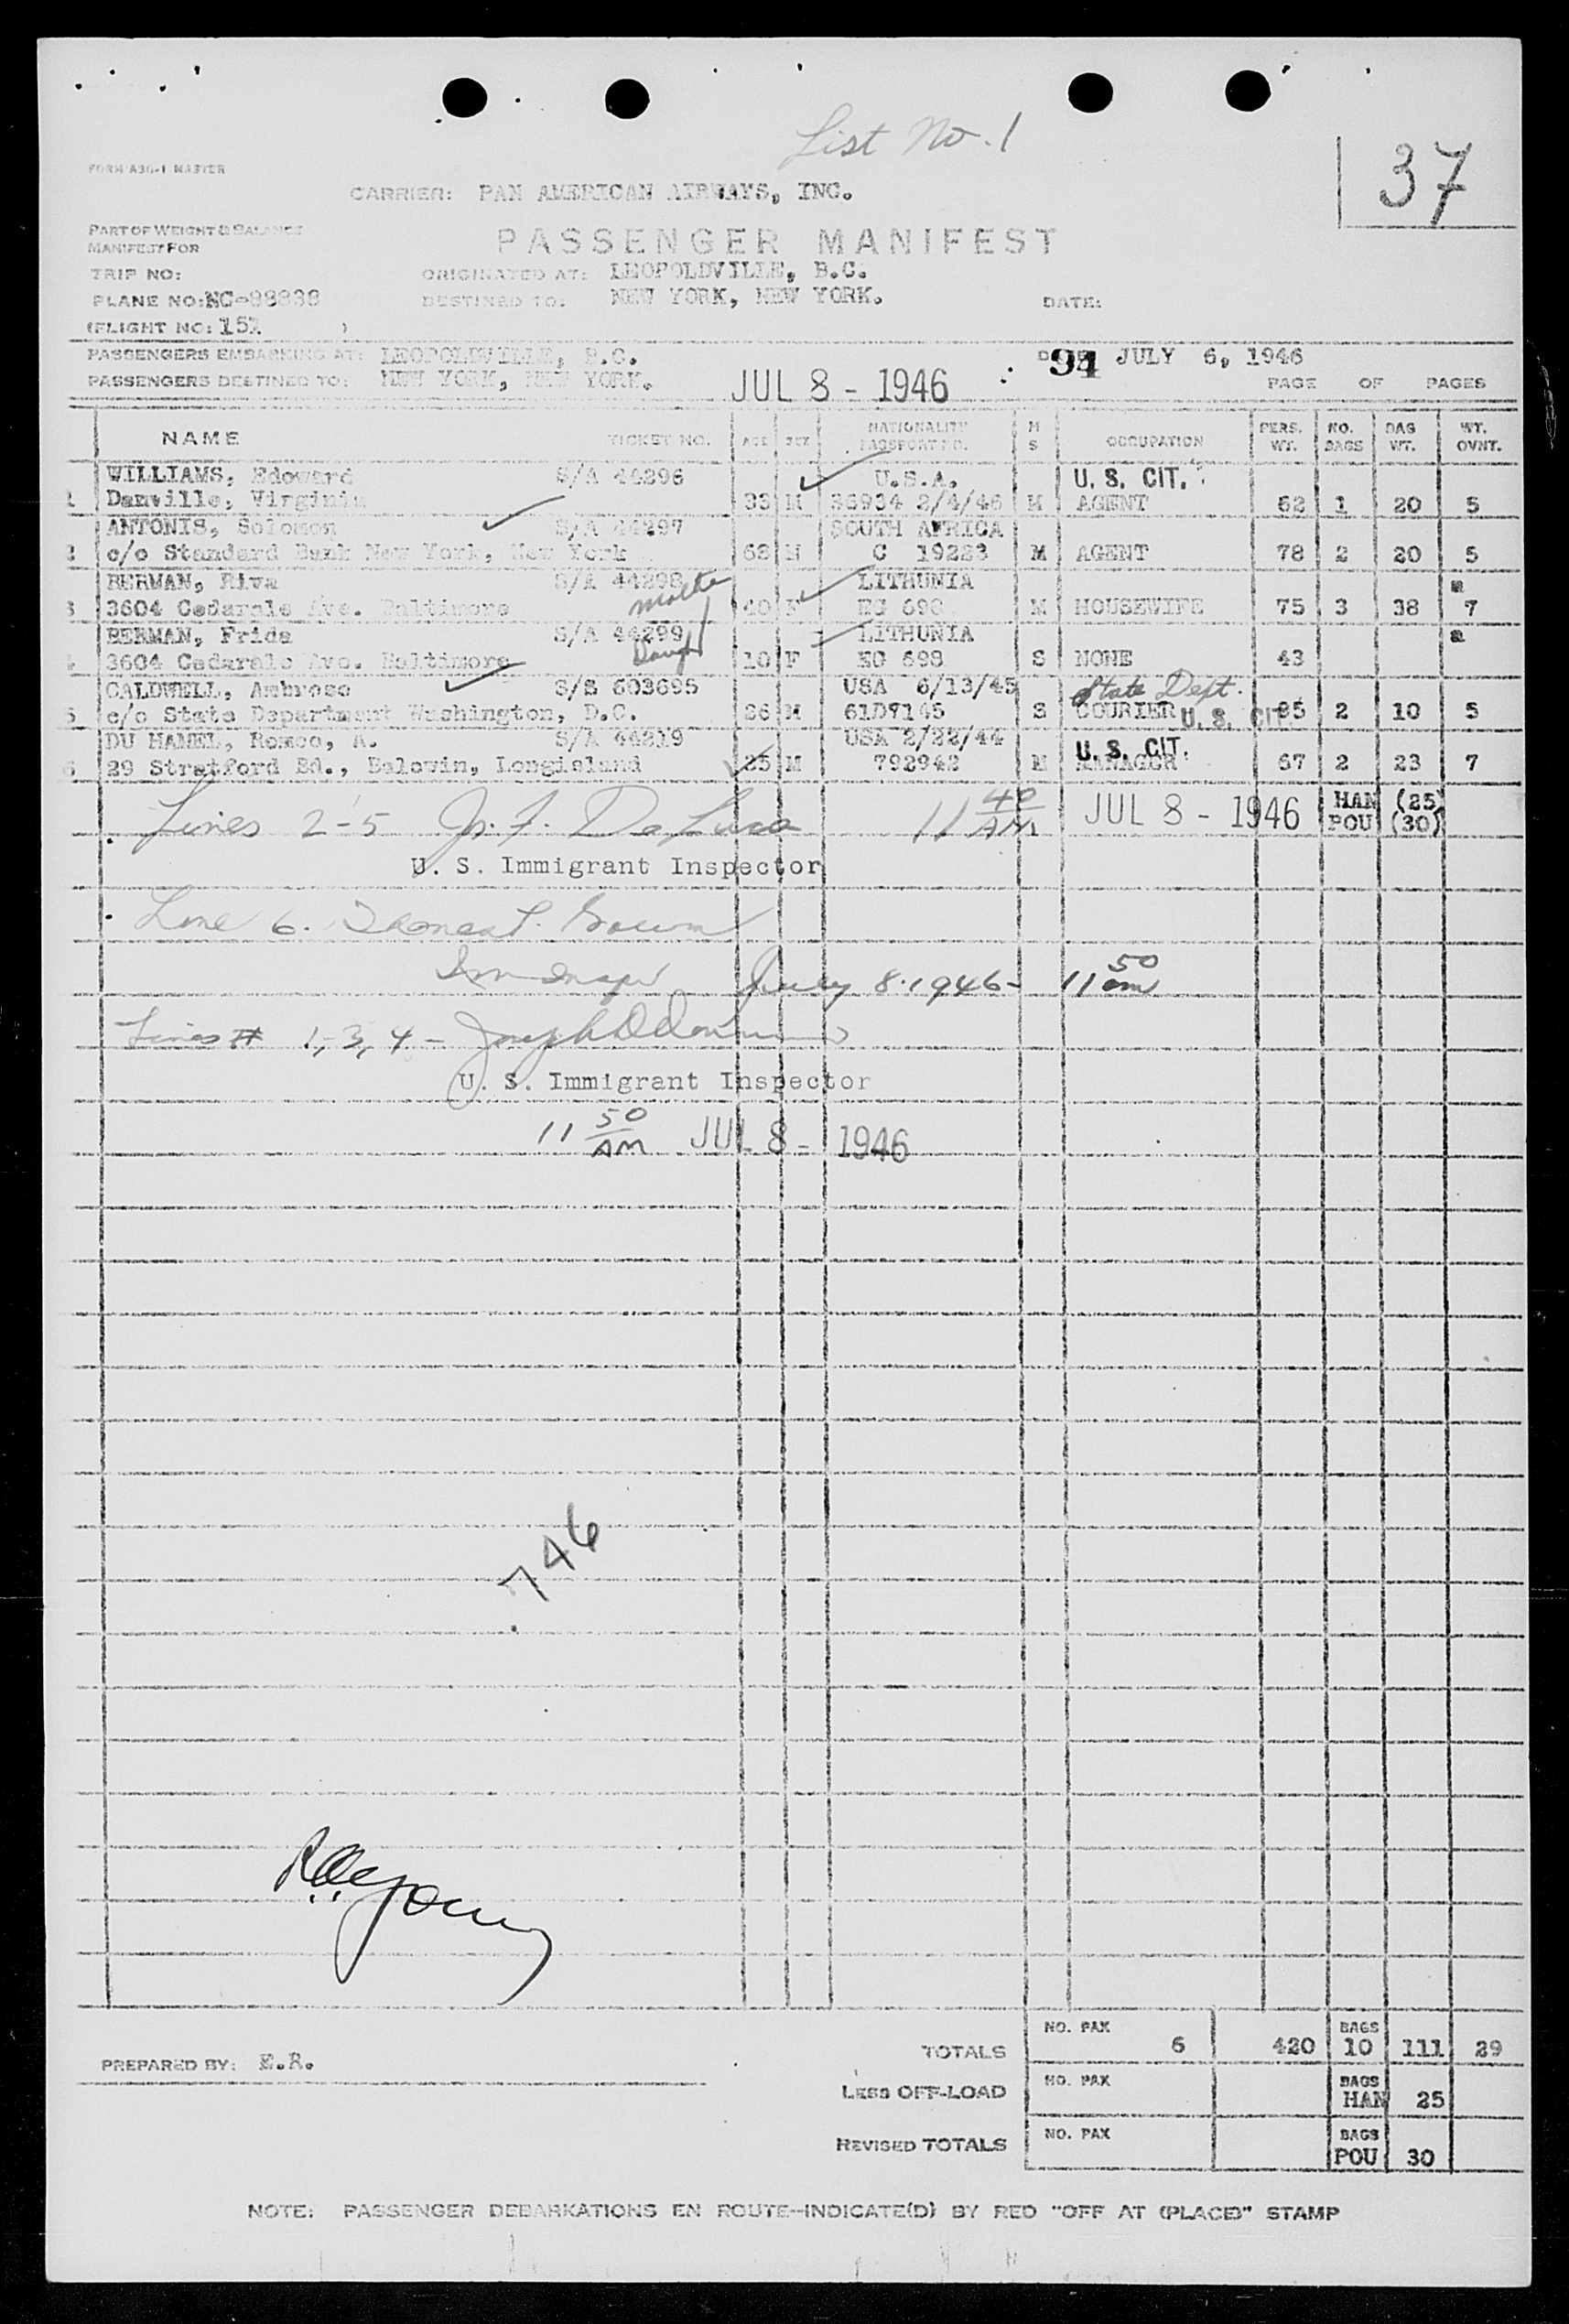 List No. 1
37
FORM A30-1 MASTER
CARRIER: PAN AMERICAN AIRWAYS, INC.
PART OF WEIGHT & BALANCE
MANIFEST FOR
PASSENGER MANIFEST
TRIP NO:
ORIGINATED AT: LEOPOLDVILLE, B.C.
PLANE NO: NC-88838
DESTINED TO: NEW YORK, NEW YORK.
DATE:
(FLIGHT NO: 151 )
PASSENGERS EMBARKING AT: LEOPOLDVILLE, B.C.
94 JULY 6, 1946
PASSENGERS DESTINED TO: NEW YORK, NEW YORK.
JUL 8 - 1946
PAGE OF PAGES
NAME TICKET NO. AGE SEX NATIONALITY PASSPORT NO. M S OCCUPATION PERS. WT. NO. BAGS BAG WT. WT. OVNT.
WILLIAMS, Edoward S/A 44296 U.S.A. U. S. CIT.
1 Danville, Virginia 33 M 36934 2/4/46 M AGENT 62 1 20 5
ANTONIS, Solomon S/A 44297 SOUTH AFRICA
2 c/o Standard Bank New York, New York 68 M C 19223 M AGENT 78 2 20 5
BERMAN, Riva S/A 44298 Mother LITHUNIA a
3 3604 Cedarale Ave. Baltimore 40 F EG 698 M HOUSEWIFE 75 3 38 7
BERMAN, Frida S/A 44299 LITHUNIA a
4 3604 Cedarale Ave. Baltimore Daugh 10 F EG 698 S NONE 43
CALDWELL, Ambrose S/S 603695 USA 6/13/45 State Dept.
5 c/o State Department Washington, D.C. 26 M 61D7145 S COURIER U. S. CIT. 95 2 10 5
DU HAMEL, Romeo, A. S/A 44219 USA 2/22/44 U. S. CIT.
6 29 Stratford Rd., Balowin, Longisland 35 M 792942 M MANAGER 67 2 23 7
Lines 2-5 11 40 AM JUL 8 - 1946 HAN (25)
POU (30)
U. S. Immigrant Inspector
Line 6.
July 8-1946- 11 50 am
Lines # 1, 3, 4 -
U. S. Immigrant Inspector
11 50 AM JUL 8 - 1946
746
TOTALS NO. PAX 6 420 BAGS 10 111 29
PREPARED BY: E.R.
LESS OFF-LOAD NO. PAX BAGS HAN 25
REVISED TOTALS NO. PAX BAGS POU 30
NOTE: PASSENGER DEBARKATIONS EN ROUTE-INDICATE(D) BY RED "OFF AT (PLACE)" STAMP